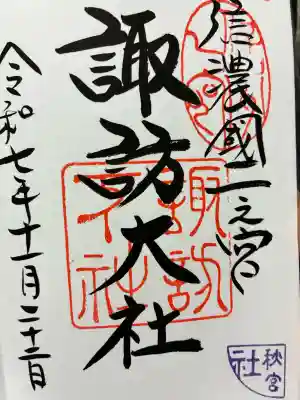 信濃國一之宮
諏訪大社
令和七年十一月二十二日
諏訪
秋宮
社